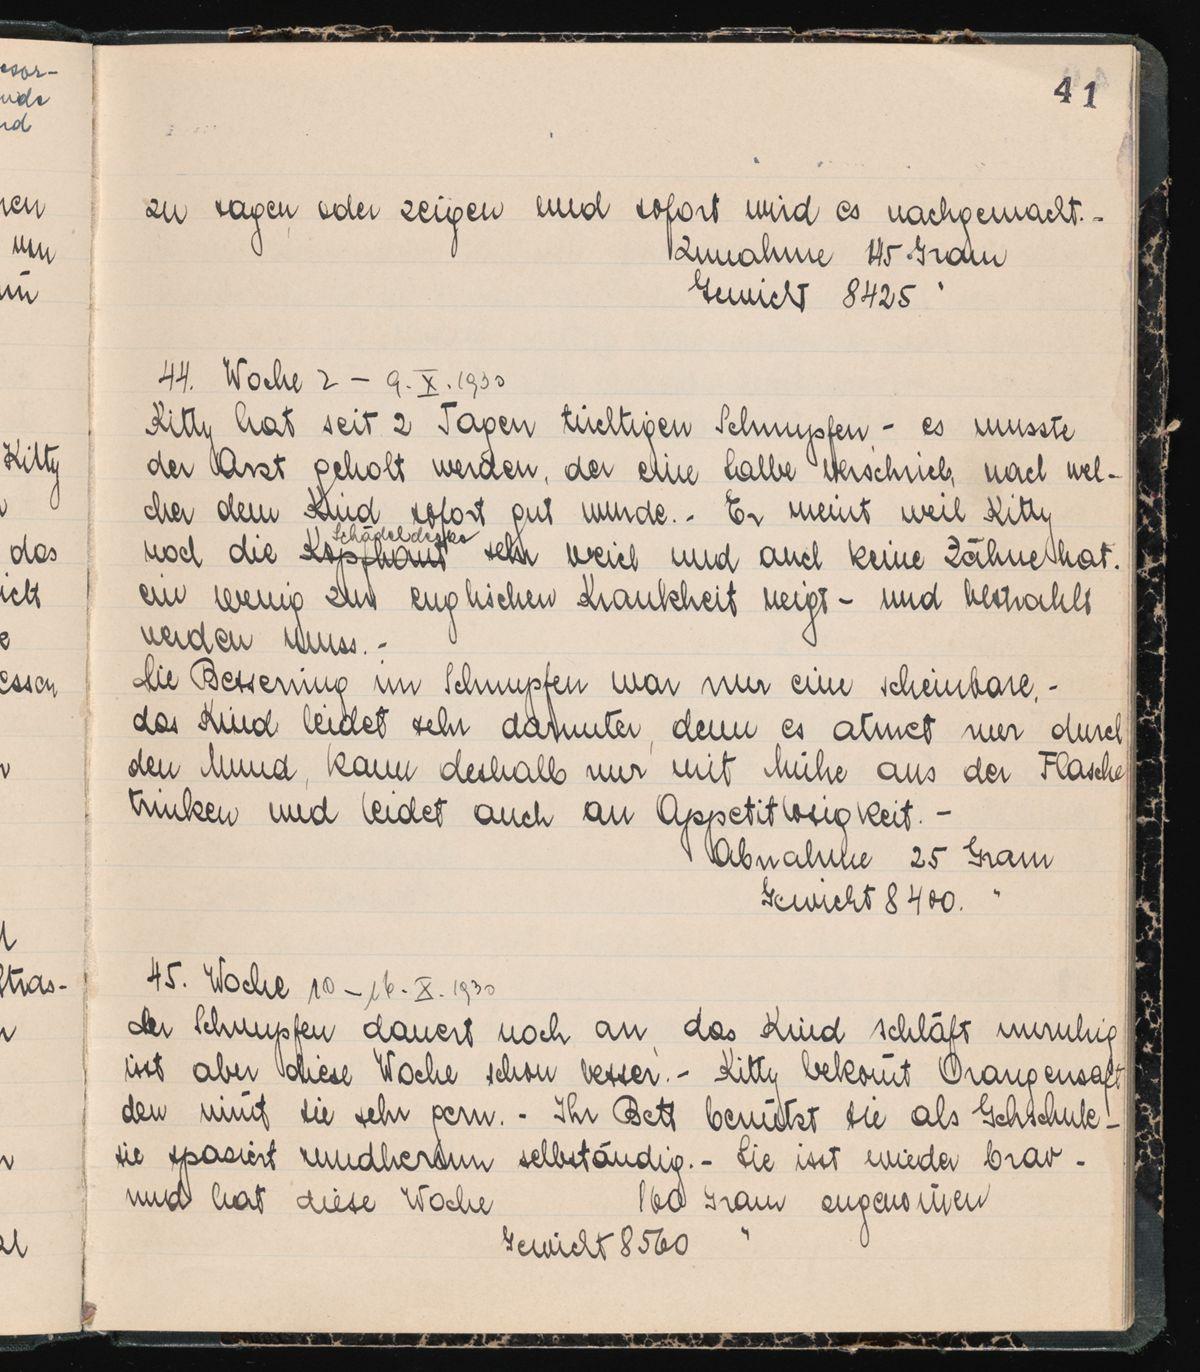 41
zu sagen oder zeigen und sofort wird es nachgemacht.-
Zunahme 145 Gram
Gewicht 8425 "
44. Woche 2 – 9. X. 1930
Kitty hat seit 2 Tagen tüchtigen Schnupfen - es musste
der Arzt geholt werden, der eine Salbe verschrieb, nach wel-
cher dem Kind sofort gut wurde.- Er meint weil Kitty
Schädeldecke
noch die Kopfhaut sehr weich und auch keine Zähne hat.
ein wenig zur englischen Krankheit neigt - und bestrahlt
werden muss.-
Die Besserung im Schnupfen war nur eine scheinbare,-
das Kind leidet sehr darunter, denn es atmet nur durch
den Mund, kann deshalb nur mit Mühe aus der Flasche
trinken und leidet auch an Appetitlosigkeit.-
Abnahme 25 Gram
Gewicht 8400. "
45. Woche 10 – 16. X. 1930
der Schnupfen dauert noch an, das Kind schläft unruhig
isst aber diese Woche schon besser.- Kitty bekom̄t Orangensaft
den nim̄t sie sehr gern.- Ihr Bett benützt sie als Gehschule-
sie spaziert rundherum selbständig.- Sie isst wieder brav -
und hat diese Woche 160 Gram zugenom̄en
Gewicht 8560 "
esor-
nen
Kitty
das
icht
e
essen
tras-